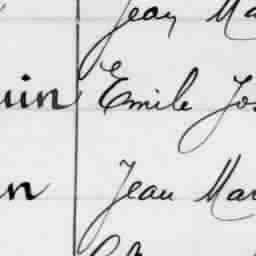 Jean Ma
uin Emile Jos
n Jean Mar